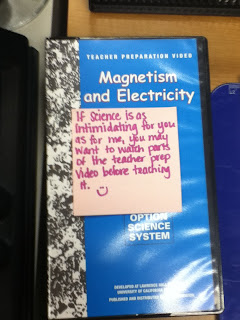 TEACHER PREPARATION VIDEO
Magnetism
and Electricity
If Science is as
intimidating for you
as for me, you may
want to watch parts
of the teacher prep
video before teaching
it.
OPTION
SCIENCE
SYSTEM
DEVELOPED AT LAWRENCE
UNIVERSITY OF CALIFORNIA
PUBLISHED AND DISTRIBUTED